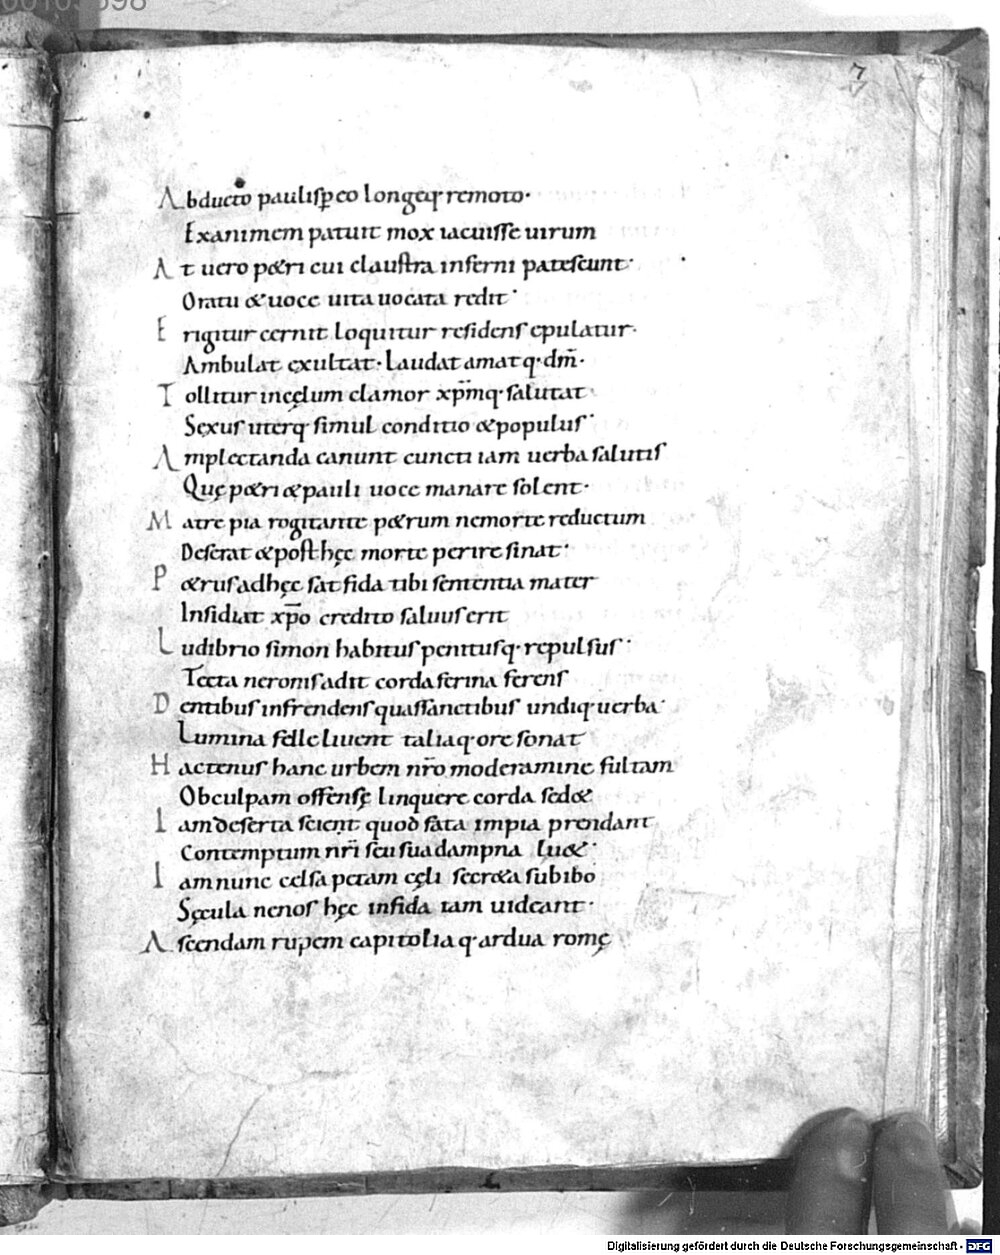 00103598
7
Abducto paulisp̄ eo longeq· remoto·
Exanimem patuit mox iacuisse uirum
At uero petri cui claustra inferni patescunt·
Oratu & uoce uita uocata redit·
Erigitur cernit loquitur residens epulatur·
Ambulat exultat· laudat amatq· dm̄·
Tollitur incęlum clamor xp̄mq· salutat·
Sexus uterq· simul conditio & populus·
Amplectanda canunt cuncti iam uerba salutis
Quę p&ri & pauli uoce manare solent·
Matre pia rogitante p&rum nemorte reductum
Deserat & posthęc morte perire sinat·
P&rus adhęc sat fida tibi sententia mater
Insidiat xp̄o credito saluus erit
Ludibrio simon habitus penitusq· repulsus·
Tecta neronis adit corda ferina ferens
Dentibus infrendens quassanctibus undiq· uerba·
Lumina felle liuent taliaq· ore sonat
Hactenus hanc urbem nr̄o moderamine fultam
Obculpam offensę linquere corda sed&
Iamdeserta scient quod fata impia prendant
Contemptum nr̄i seu sua dampna lu&·
Iamnunc celsa petam cęli secr&a subibo
Sęcula nenos hęc infida iam uideant·
Ascendam rupem capitoliaq· ardua romę
Digitalisierung gefördert durch die Deutsche Forschungsgemeinschaft - DFG